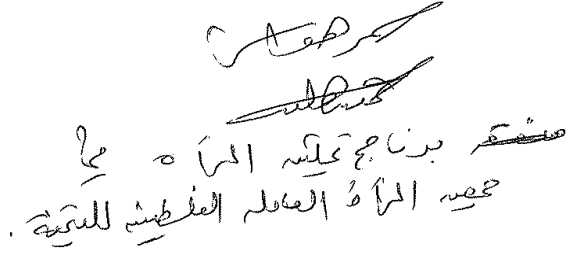 سمر هواش
منسقة برنامج تمكين المرأة في
جمعية المرأة العاملة الفلسطينية للتنمية.